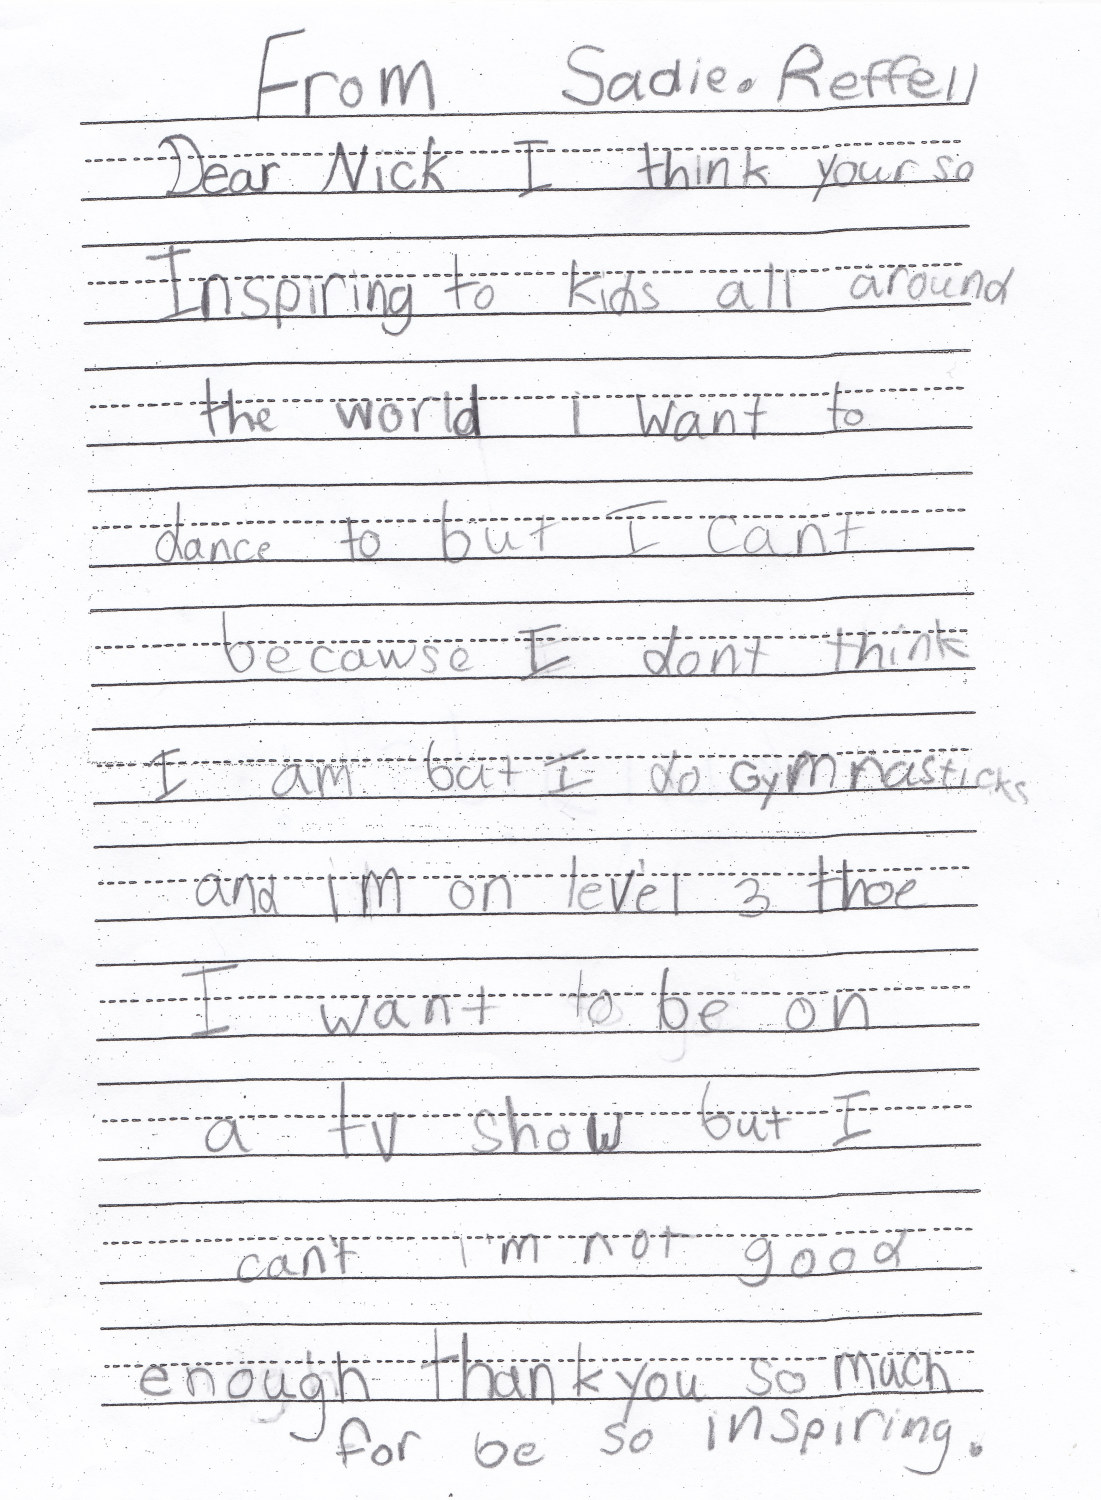 From Sadie. Reffell
Dear Nick I think your so
Inspiring to kids all around
the world I want to
dance to but I cant
becawse I dont think
I am but I do Gymnasticks
and I'M on level 3 thoe
I want to be on
a tv show but I
can't I'm not good
enough thank you so much
for be so inspiring.